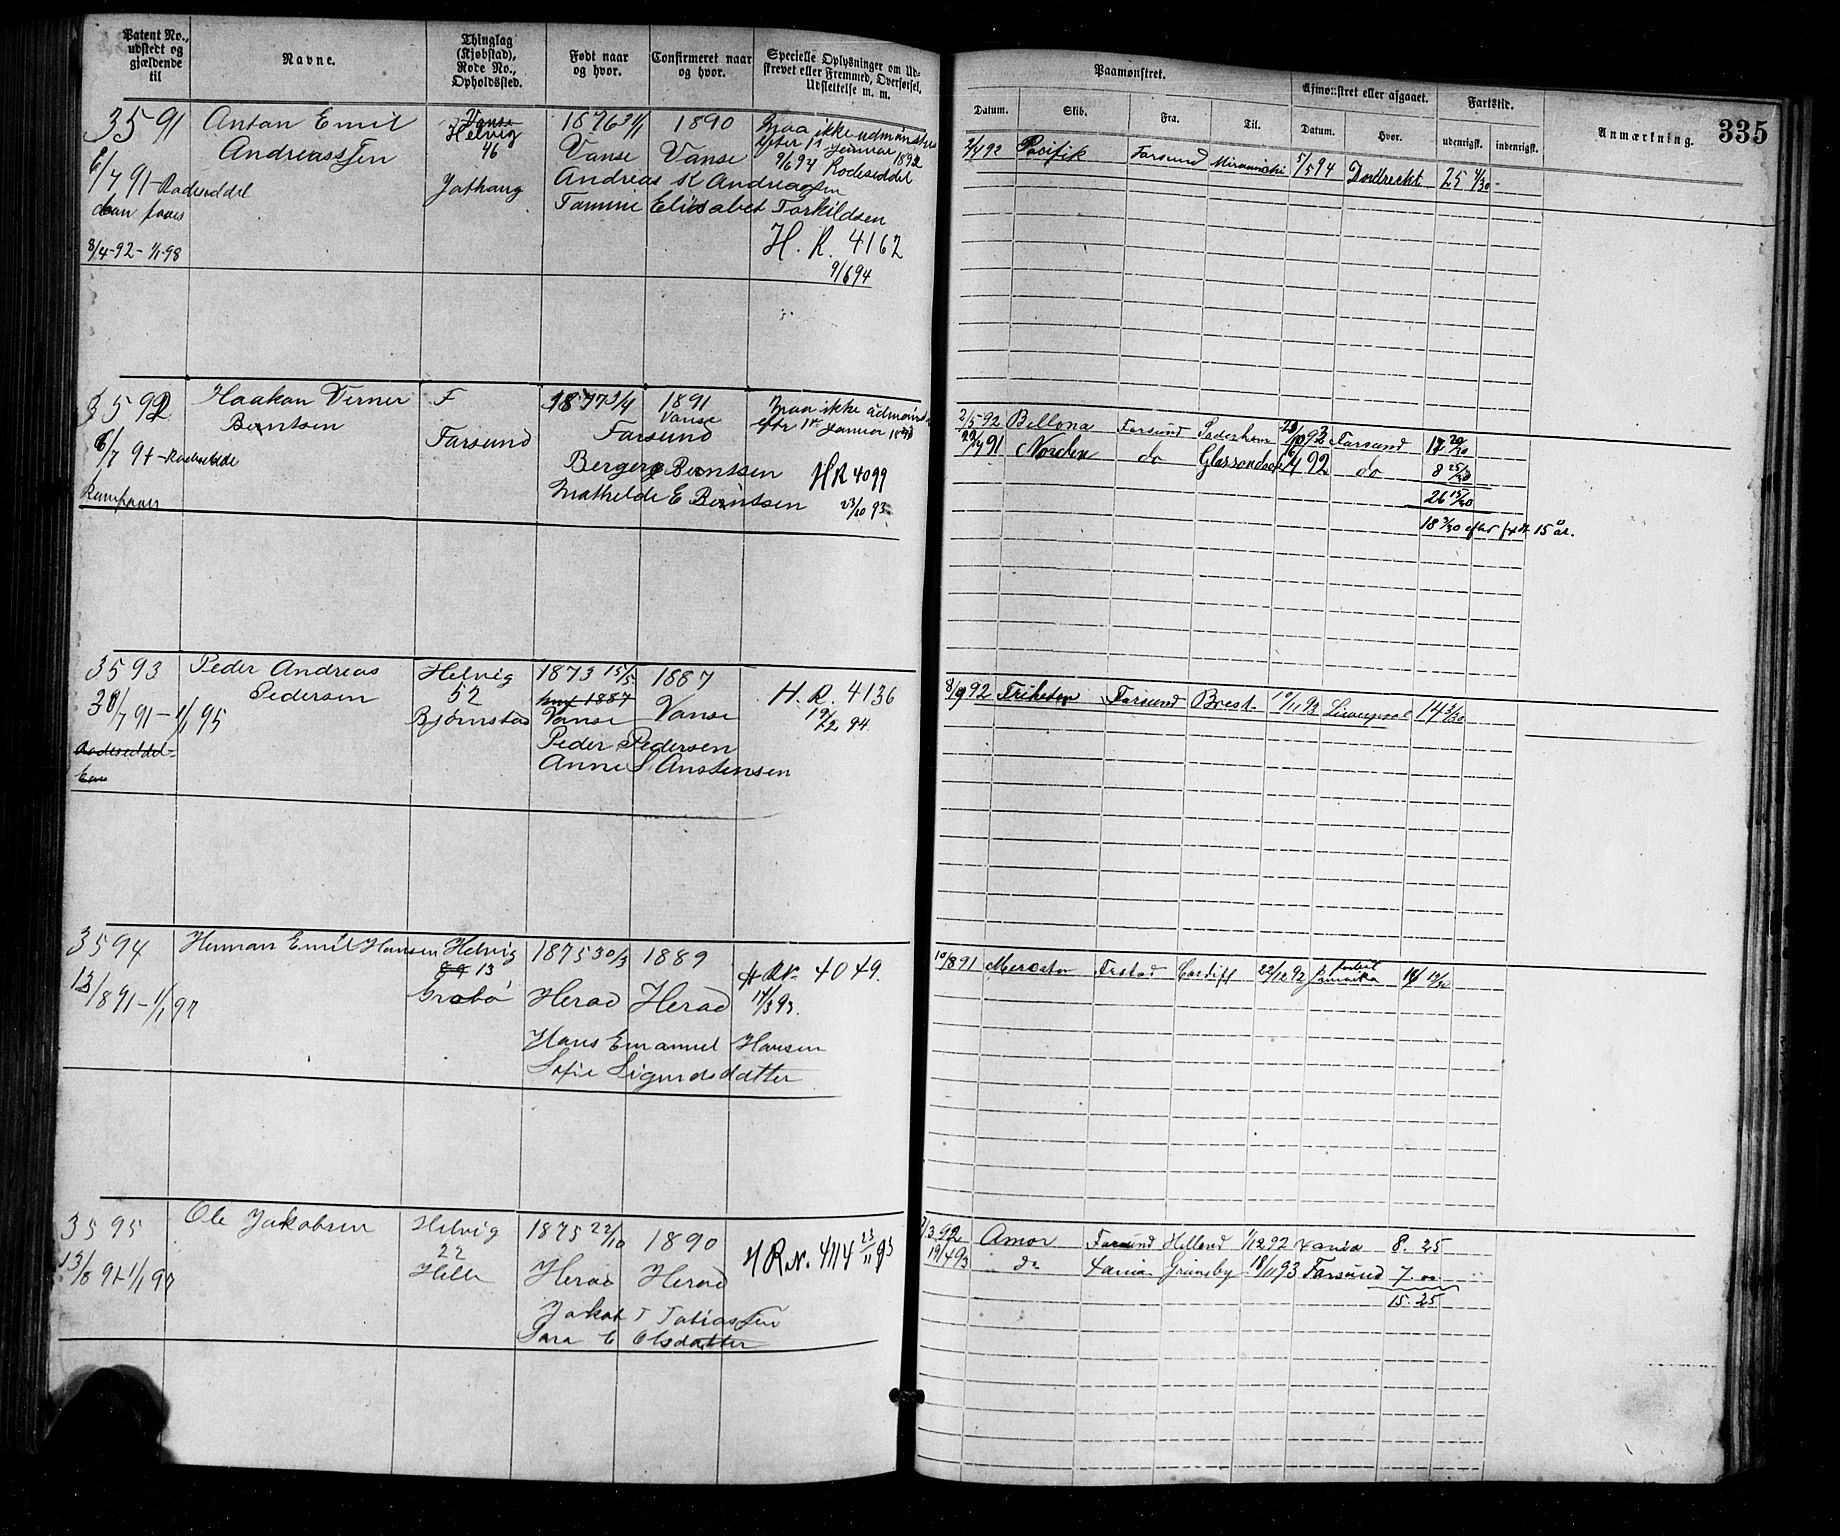 Patent No., udstedt og gjældende til
Navne.
Thinglag (Kjøbstad), Rode No., Opholdssted.
Født naar og hvor.
Confirmeret naar og hvor.
Specielle Oplysninger om Udstrevet eller Fremmed, Overførsel, Udslettelse m. m.
Paamønstret.
Afmønstret eller afgaaet.
Fartstid.
Anmærkning.
335
Datum.
Skib.
Fra.
Til.
Datum.
Hvor.
udenrigsk.
indenrigsk.
3591
Anton Emil
Andreassen
6/7 91 - Rodeseddel
8/4-92 - 1/1-98
Vanse
Helvig
46
1876 31/1
Vanse
1890
Vanse
Maa ikke udmønstres
efter 1ste Januar 1892
9/6 94 Rodeseddel
Andreas K Andreassen
Tomine Elisabet Torkildsen
H. R. 4162
9/6 94
2/4 92 Pacifik Farsund Miramichi 5/5 94 Dordrecht 25 4/30
3592
Haakon Verner
Berntsen
6/7 91 - Rodeseddel
F
Farsund
1877 3/4
Farsund
1891
Vanse
Maa ikke udmønstres
efter 1ste Januar 1893
Mathilde E Berntsen
HR 4099
23/10 93
2/5 92 Bellona Farsund Farsund 17 29/30
Norden do 92 do 8 25/30
26 15/30
18 3/30 efter fyldt 15 år.
3593
Peder Andreas
Pedersen
7 91 - 1/1 95
Rodeseddel
Helvig
52
Bjørnstad
1873 15/5
Vanse
1887
Vanse
Peder Pedersen
Anne S Anstensen
H. R. 4136
19/2 94.
92 Friheden Farsund Brest 10/11 93 Liverpool 14 3/30
3594
Herman Emil Hansen
13/8 91 - 1/1 97
Helvig
13
1875 30/3
Herad
1889
Herad
Hans Emanuel Hansen
Sofie Sigurdsdatter
H RN. 4049.
17/3 93.
10/8 91 Cardiff 22/12 92 Jamaika
3595
Ole Jakobsen
13/8 91 - 1/1 97
Helvig
22
Helle
1875 22/10
Herad
1890
Herad
Jakob T Tobiassen
Sara E Olsdatter
H RN. 4114 23/11 93
7/3 92 Amor Farsund 8. 25
19/4 93 do Grimsby 18/11 93 Farsund 7. 00
15. 25